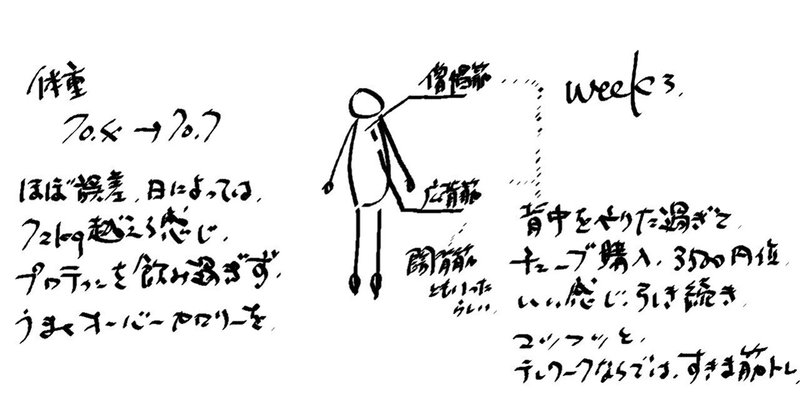 体重
70.4→70.7
ほぼ誤差、日によっては、
72kg越える感じ、
プロテインを飲み過ぎず、
うまくオーバーカロリーを、
僧帽筋
広背筋
闊背筋
ともいった
らしい、
week3,
背中をやりた過ぎて
チューブ購入、3500円位
いい感じ、引き続き、
コツコツと、
テレワークならでは、すきま筋トレ、